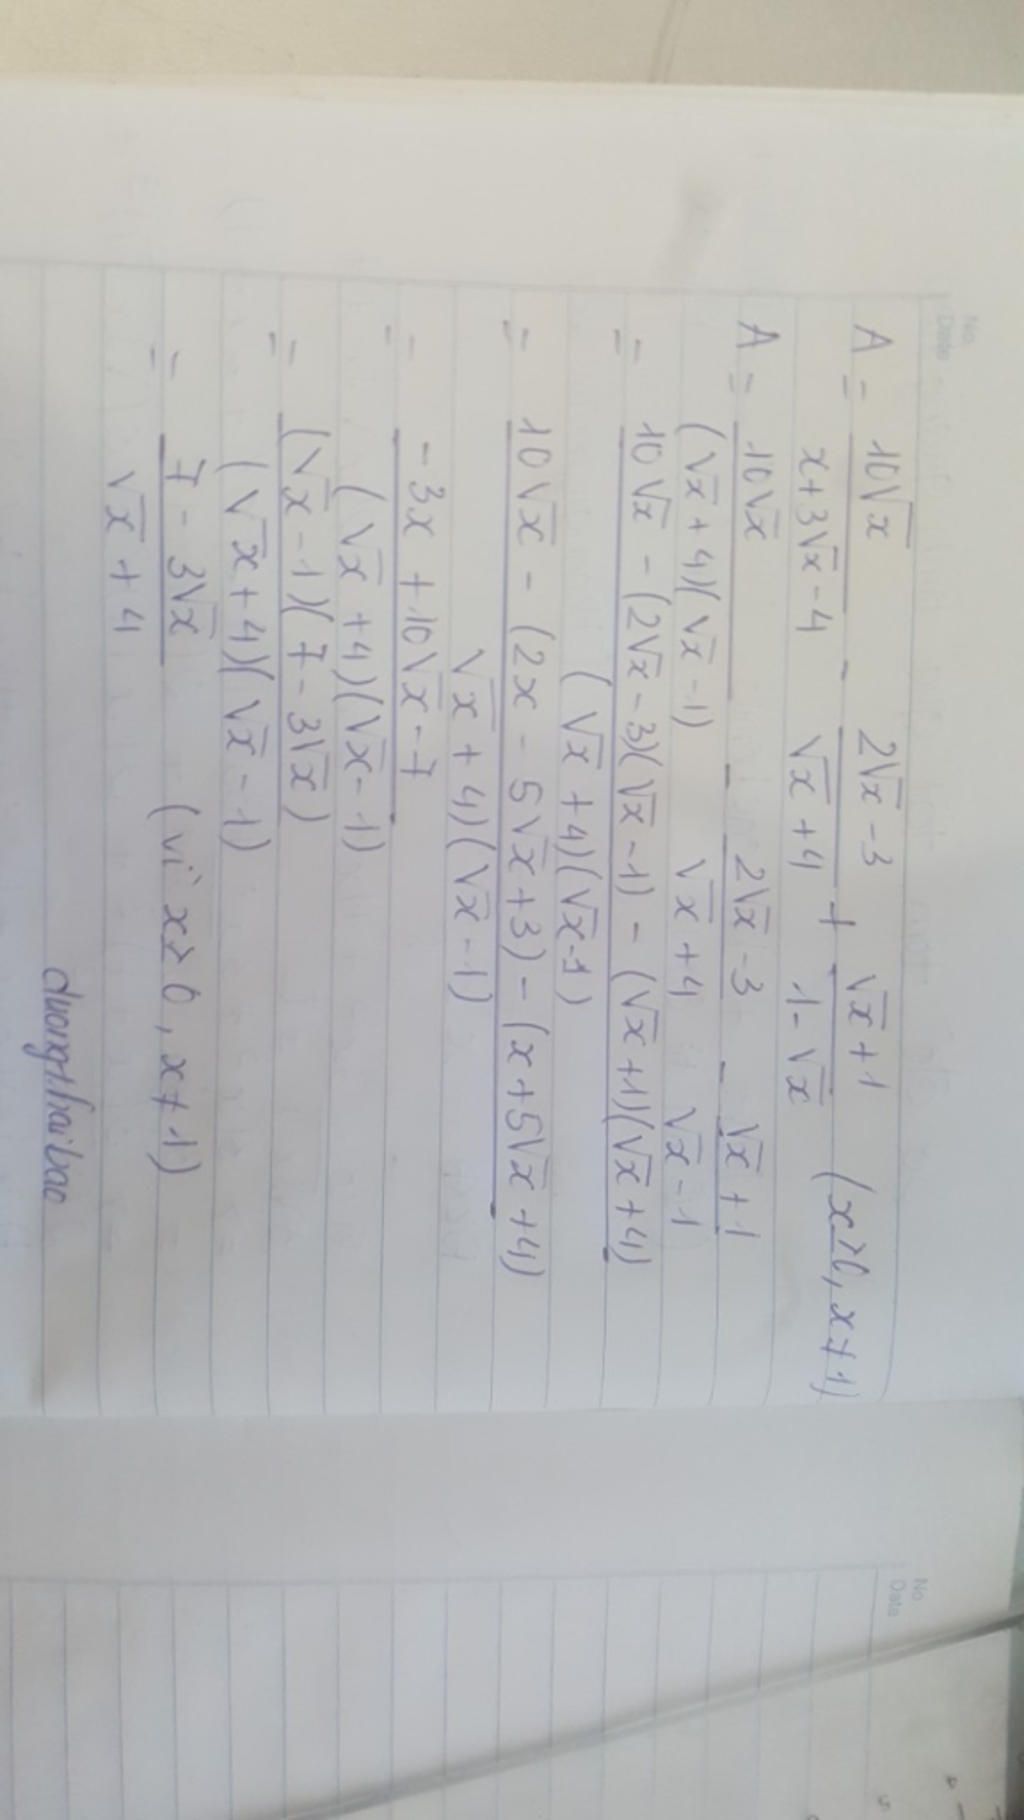 No.
Date
A = 10√x / (x+3√x-4) - (2√x-3) / (√x+4) + (√x+1) / (1-√x) (x≥0, x≠1)
A = 10√x / (√x+4)(√x-1) - (2√x-3) / (√x+4) - (√x+1) / (√x-1)
= 10√x - (2√x-3)(√x-1) - (√x+1)(√x+4) / (√x+4)(√x-1)
= 10√x - (2x - 5√x+3) - (x+5√x+4) / √x+4)(√x-1)
= -3x + 10√x - 7 / (√x+4)(√x-1)
= (√x-1)(7-3√x) / (√x+4)(√x-1)
= 7 - 3√x / √x+4 (vì x≥0, x≠1)
duongthaibao
No
Date